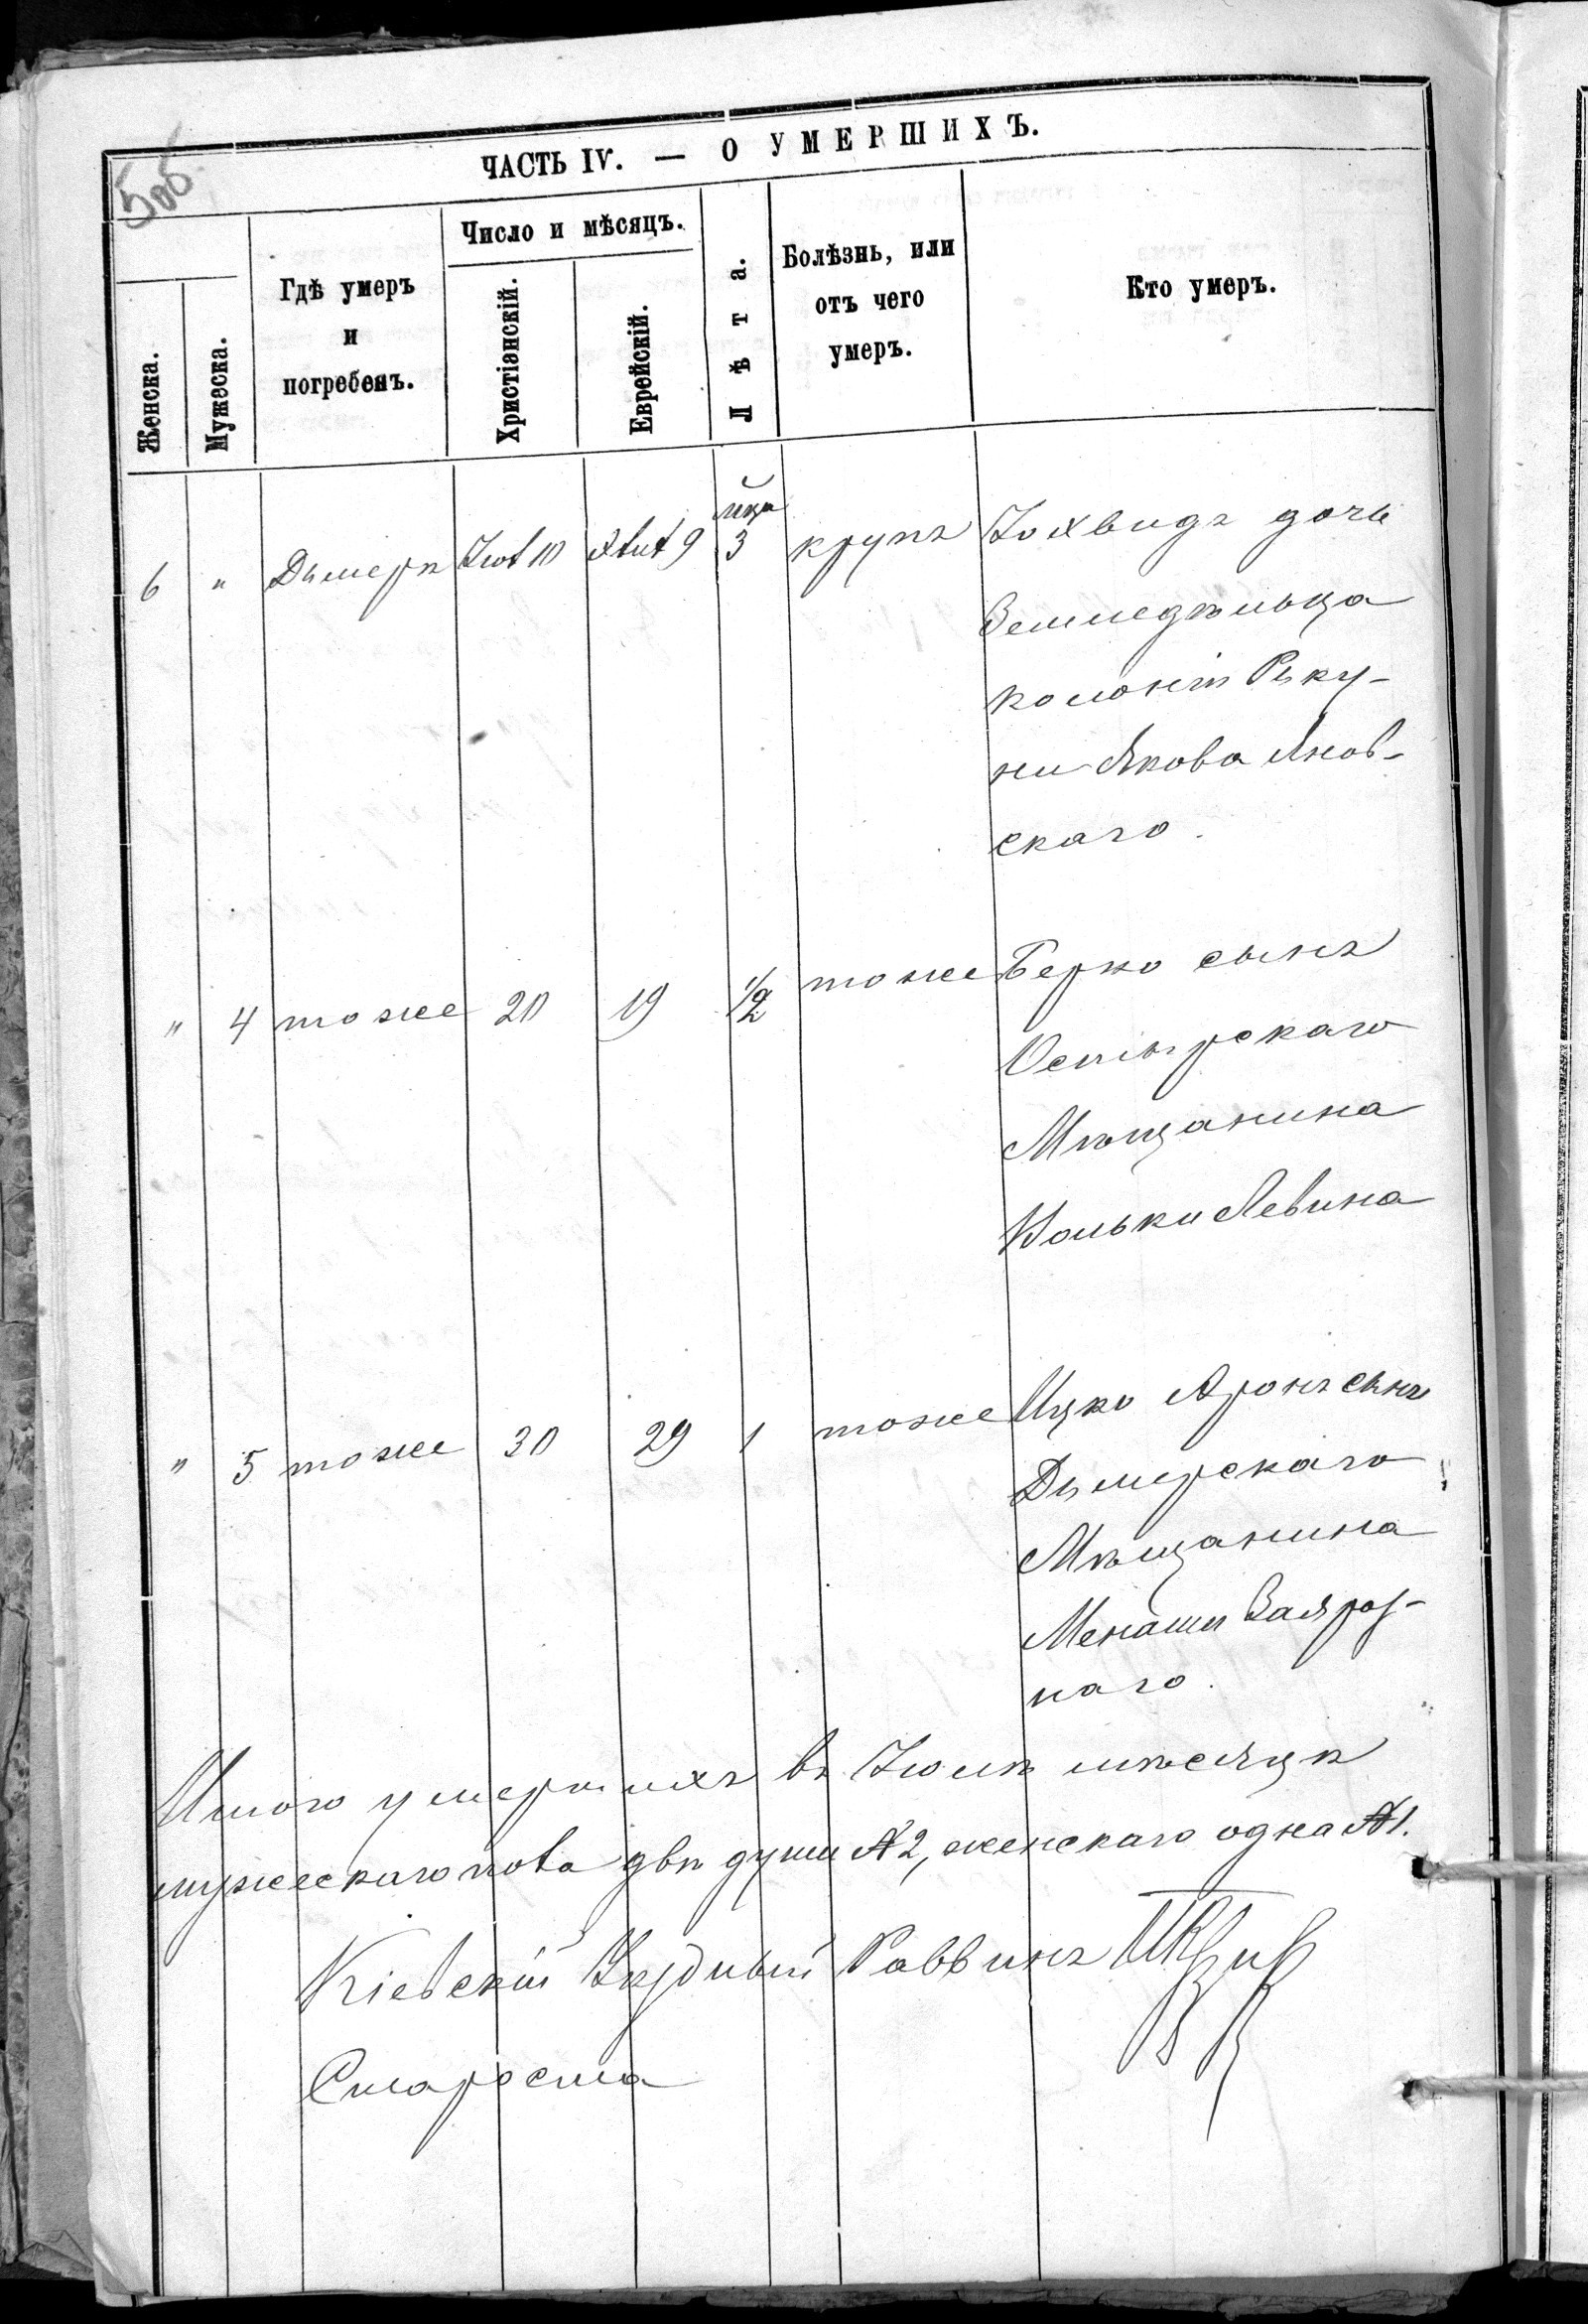 5об
ЧАСТЬ IV. — О УМЕРШИХЪ.
Женска.
Мужеска.
Гдѣ умеръ
и
погребенъ.
Число и мѣсяцъ.
Христіанскій.
Еврейскій.
Лѣта.
Болѣзнь, или
отъ чего
умеръ.
Кто умеръ.
6 " Дымеръ Іюл 10 9 3 крупъ Іохвидъ дочь
Земледѣльца
колоніи Рыку-
ни Якова Янов-
скаго.
" 4 тоже 20 19 1/2 тоже Берко сынъ
Остерскаго
Мѣщанина
Левина
" 5 тоже 30 29 1 тоже Ицко Аронъ сынъ
Дымерскаго
Мѣщанина
Менаши
наго.
Итого умершихъ въ Іюлѣ мѣсяцѣ
мужескаго пола двѣ души № 2, женскаго одна № 1.
Кіевскій Уѣздный Раввинъ
Староста